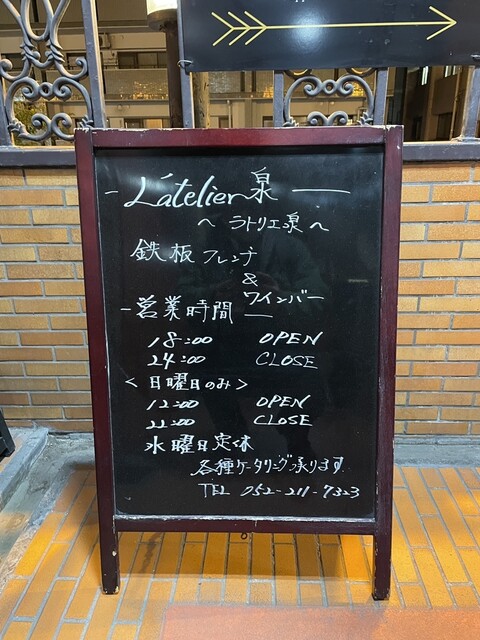 - L'atelier 泉 -
～ ラトリエ泉 ～
鉄板フレンチ
&
ワインバー
- 営業時間 -
18:00 OPEN
24:00 CLOSE
<日曜日のみ>
12:00 OPEN
22:00 CLOSE
水曜日定休
各種ケータリング承ります.
TEL 052-211-7323